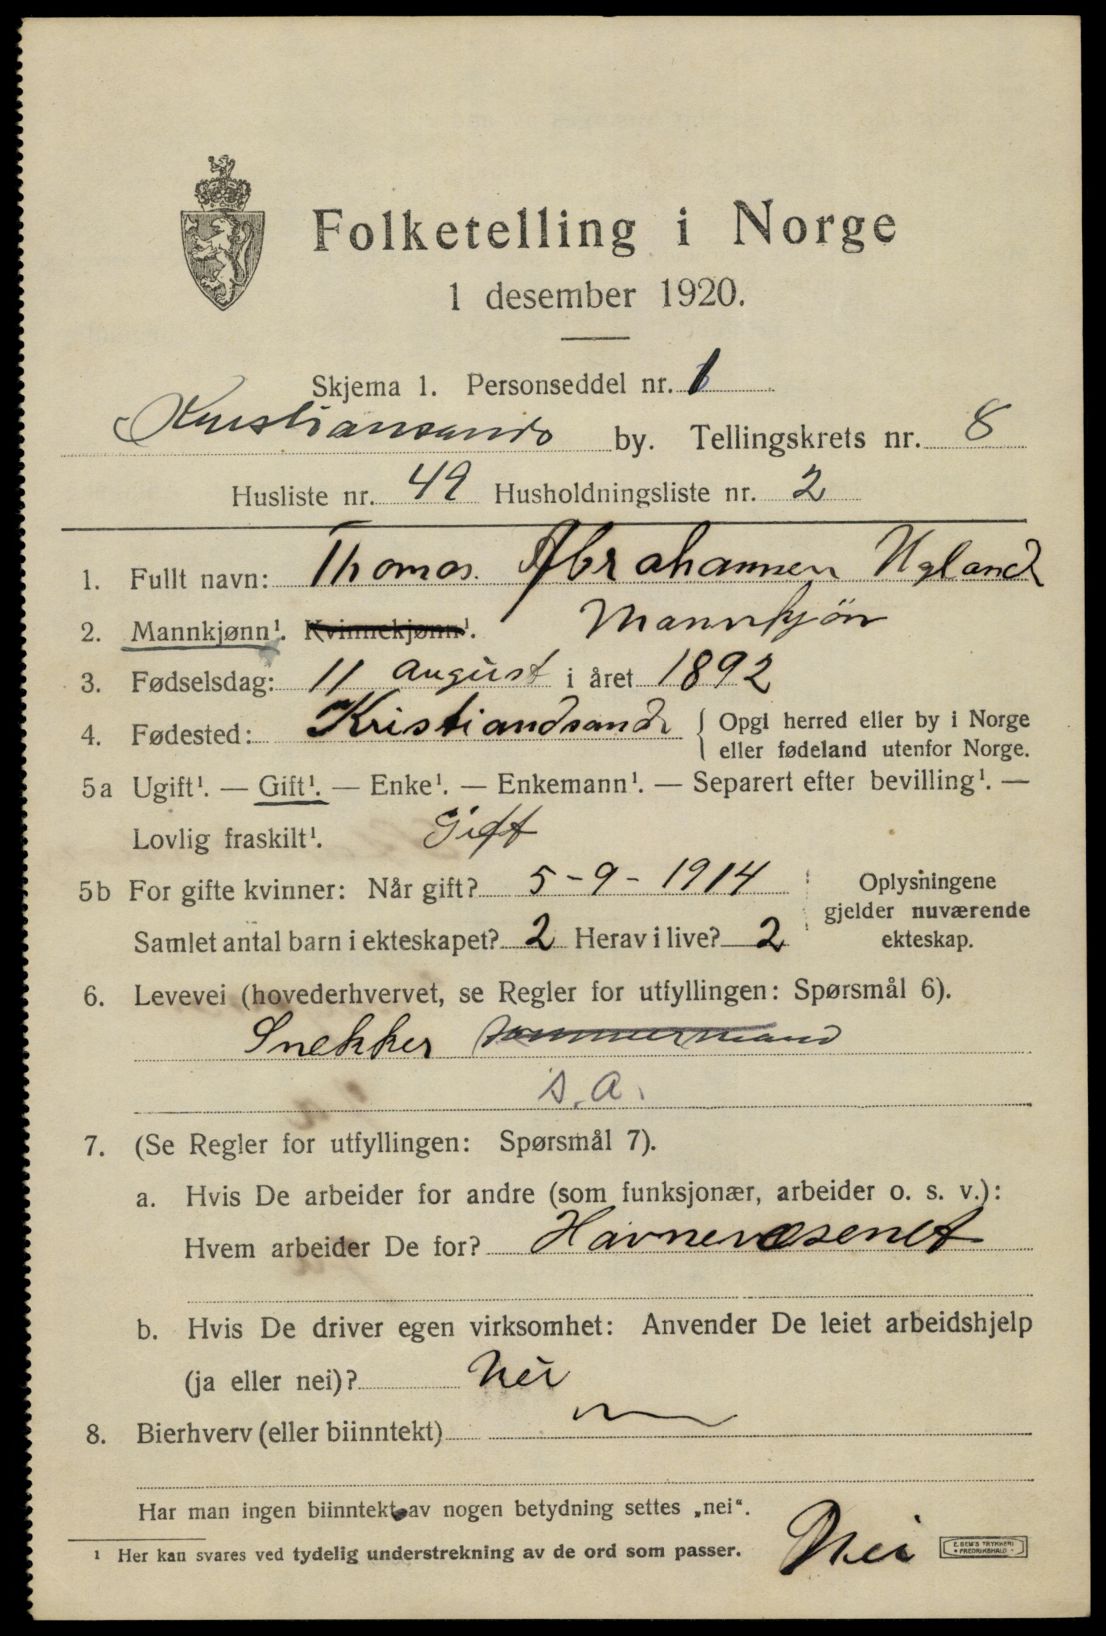 Folketelling i Norge
1 desember 1920.
Skjema 1. Personseddel nr. 1
Kristiansands by. Tellingskrets nr. 8
Husliste nr. 49 Husholdningsliste nr. 2
1. Fullt navn: Thomas. Abrahamsen Ugland
2. Mannkjønn¹. Kvinnekjønn¹. Mannkjön
3. Fødselsdag: 11 august i året 1892
4. Fødested: Kristiandsand { Opgi herred eller by i Norge
eller fødeland utenfor Norge.
5a Ugift¹. — Gift¹. — Enke¹. — Enkemann¹. — Separert efter bevilling¹. —
Lovlig fraskilt¹. Gift
5b For gifte kvinner: Når gift? 5-9-1914 Oplysningene
gjelder nuværende
Samlet antal barn i ekteskapet? 2 Herav i live? 2 ekteskap.
6. Levevei (hovederhvervet, se Regler for utfyllingen: Spørsmål 6).
Snekker tømmermand
s.a.
7. (Se Regler for utfyllingen: Spørsmål 7).
a. Hvis De arbeider for andre (som funksjonær, arbeider o. s. v.):
Hvem arbeider De for? Havnevæsenet
b. Hvis De driver egen virksomhet: Anvender De leiet arbeidshjelp
(ja eller nei)? Nei
8. Bierhverv (eller biinntekt)
Har man ingen biinntekt av nogen betydning settes „nei“.
Nei
¹ Her kan svares ved tydelig understrekning av de ord som passer.
E. SEM'S TRYKKERI
FREDRIKSHALD